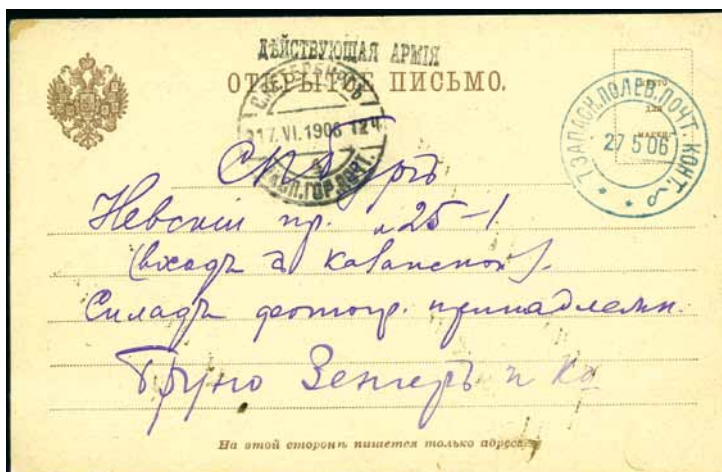 ДѢЙСТВУЮЩАЯ АРМІЯ
ОТКРЫТОЕ ПИСЬМО.
МѢСТО
ДЛЯ
МАРКИ
С.ПЕТЕРБУРГЪ
17.VI.1906 12Ч
ГОР.ПОЧТ.
7 ЗАПАСН.ПОЛЕВ.ПОЧТ. КОНТ.
27 5 06
СПбургъ
Невскій пр. 25-1
(входъ съ Казанской).
Складъ фотогр. принадлежн.
Бруно Зенгеръ и Ко
На этой сторонѣ пишется только адресъ.